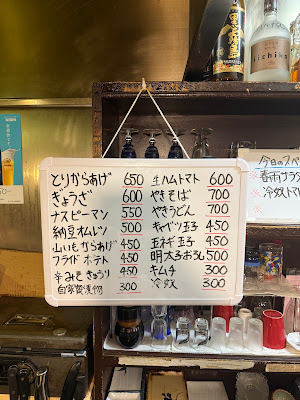 とりからあげ 650
ぎょうざ 600
ナスピーマン 550
納豆オムレツ 500
山いもからあげ 450
フライドポテト 450
辛みそきゅうり 450
自家製漬物 300
生ハムトマト 600
やきそば 700
やきうどん 700
キャベツ玉子 450
玉ネギ玉子 450
明太子おろし 500
キムチ 300
冷奴 300
今日のスペ
春雨サラダ
冷奴トマ
iichiko